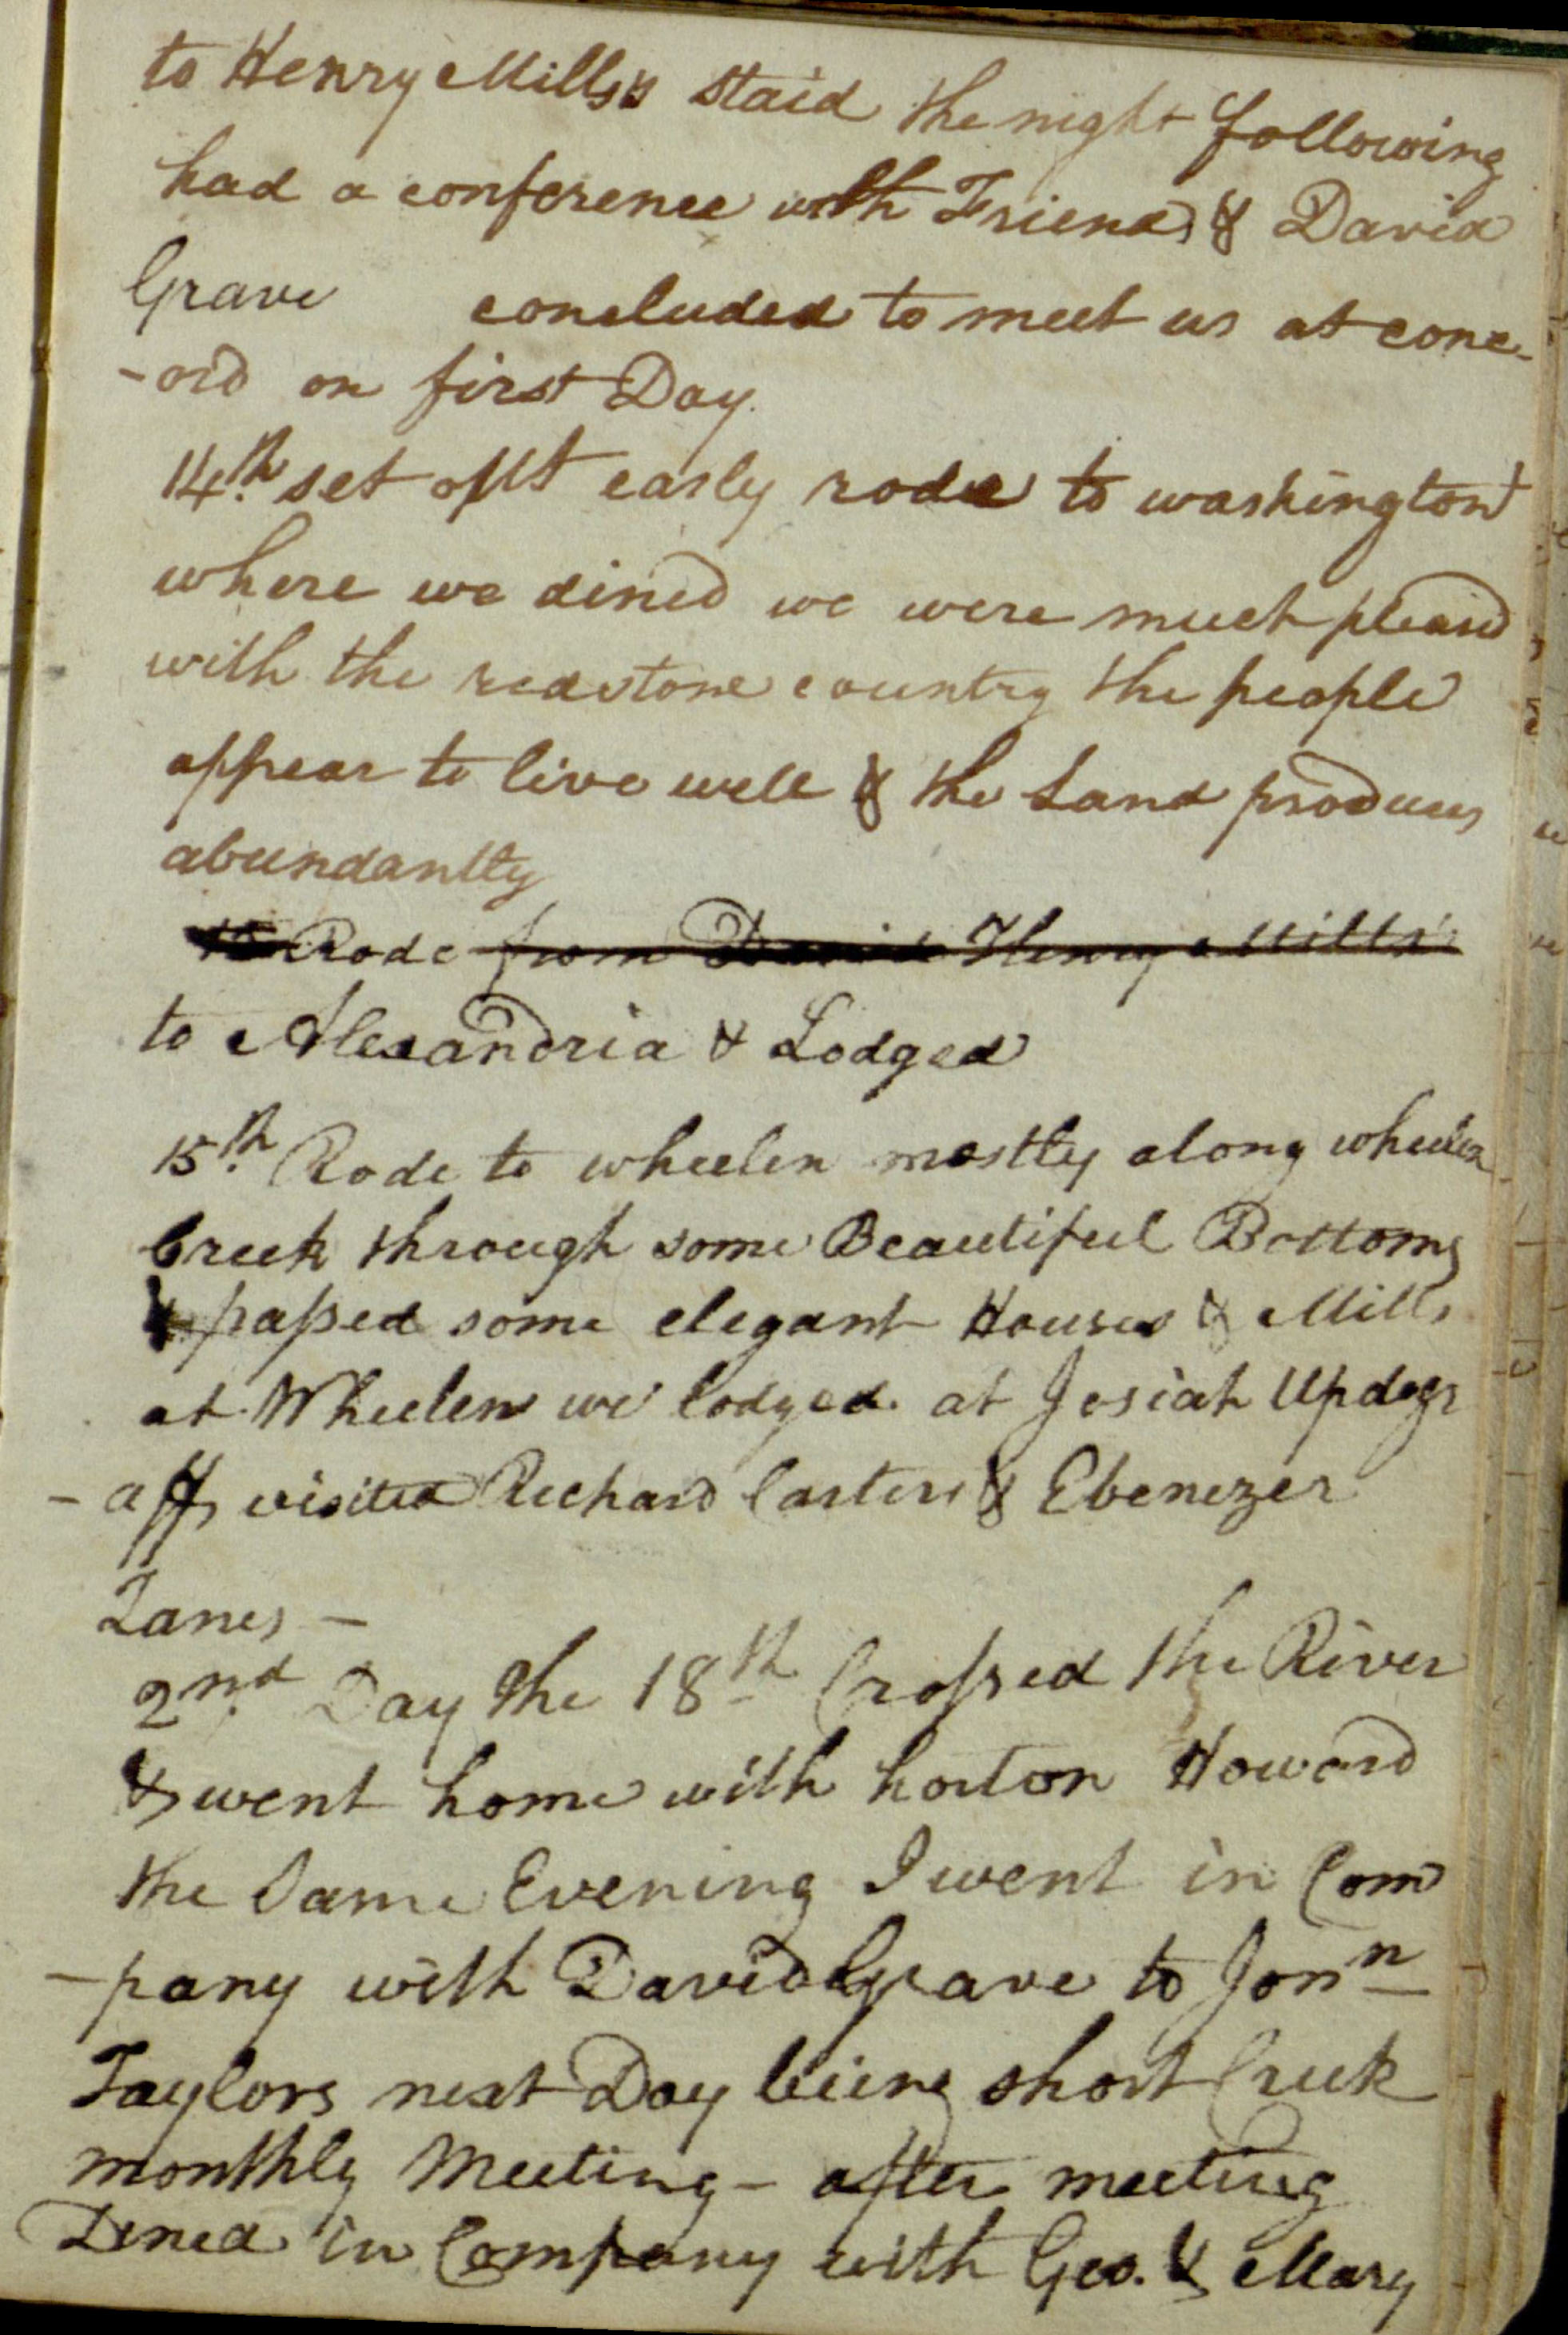 to Henry Mills's staid the night following
had a conference with Friends & David
Grave concluded to meet us at conc-
-ord on first Day
14th set off early rode to washington
where we dined we were much pleasd
with the redstone country the people
appear to live well & the Land produces
abundantly
15 Rode from David Henry Mills's
to Alexandria & Lodged
15th Rode to wheelen mostly along wheelen
Creek through some Beautiful Bottoms
& passed some elegant Houses & Mills
at Wheelen we lodged at Josiah Updegr
-affs visited Richard Carters & Ebenezer
Zanes -
2nd Day the 18th Crossed the River
& went home with horton Howard
the Same Evening I went in Com
-pany with David Grave to Jonn
Taylors next Day being short Creek
monthly Meeting - after meeting
Dined in Company with Geo. & Mary